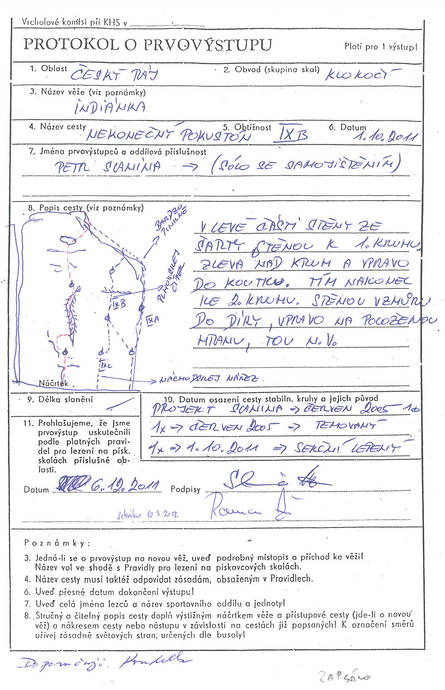 Vrcholové komisi při KHS v
PROTOKOL O PRVOVÝSTUPU
Platí pro 1 výstup!
1. Oblast ČESKÝ RÁJ
2. Obvod (skupina skal) KLOKOČÍ
3. Název věže (viz poznámky)
INDIÁNKA
4. Název cesty NEKONEČNÝ POKUSTÓN
5. Obtížnost IXB
6. Datum 1.10.2011
7. Jména prvovýstupců a oddílová příslušnost
PETR SLANINA → (SÓLO SE SAMOJIŠTĚNÍM)
8. Popis cesty (viz poznámky)
V LEVÉ ČÁSTI STĚNY ZE
ŠÁRTY STĚNOU K 1. KRUHU.
ZLEVA NAD KRUH A VPRAVO
DO KOUTKU. TÍM NAKONEC
KE 2. KRUHU. STĚNOU VZHŮRU
DO DÍRY, VPRAVO NA POLOŽENOU
HRANU, TOU N.V.
IXB
IXA
IXC
NÁCHODSKEJ NÁŘEZ
Náčrtek
9. Délka slanění
10. Datum osazení cesty stabiln. kruhy a jejich původ
PROJEKT SLANINA → ČERVEN 2005
1x → ČERVEN 2005 →
1x → 1.10.2011 → SEKČNÍ LEPENÝ
11. Prohlašujeme, že jsme
prvovýstup uskutečnili
podle platných pravi-
del pro lezení na písk.
skalách příslušné ob-
lasti.
Datum 6.12.2011
Podpisy
10.3.2012
Poznámky:
3. Jedná-li se o prvovýstup na novou věž, uveď podrobný místopis a příchod ke věži!
Název vol ve shodě s Pravidly pro lezení na pískovcových skalách.
4. Název cesty musí taktéž odpovídat zásadám, obsaženým v Pravidlech.
6. Uveď přesné datum dokončení výstupu!
7. Uveď celá jména lezců a název sportovního oddílu a jednoty!
8. Stručný a čitelný popis cesty doplň výstižným náčrtkem věže a přístupové cesty (jde-li o novou
věž) a nákresem cesty nebo nástupu v závislosti na cestách již popsaných! K označení směrů
užívej zásadně světových stran, určených dle busoly!
Doporučuji
ZAPSÁNO